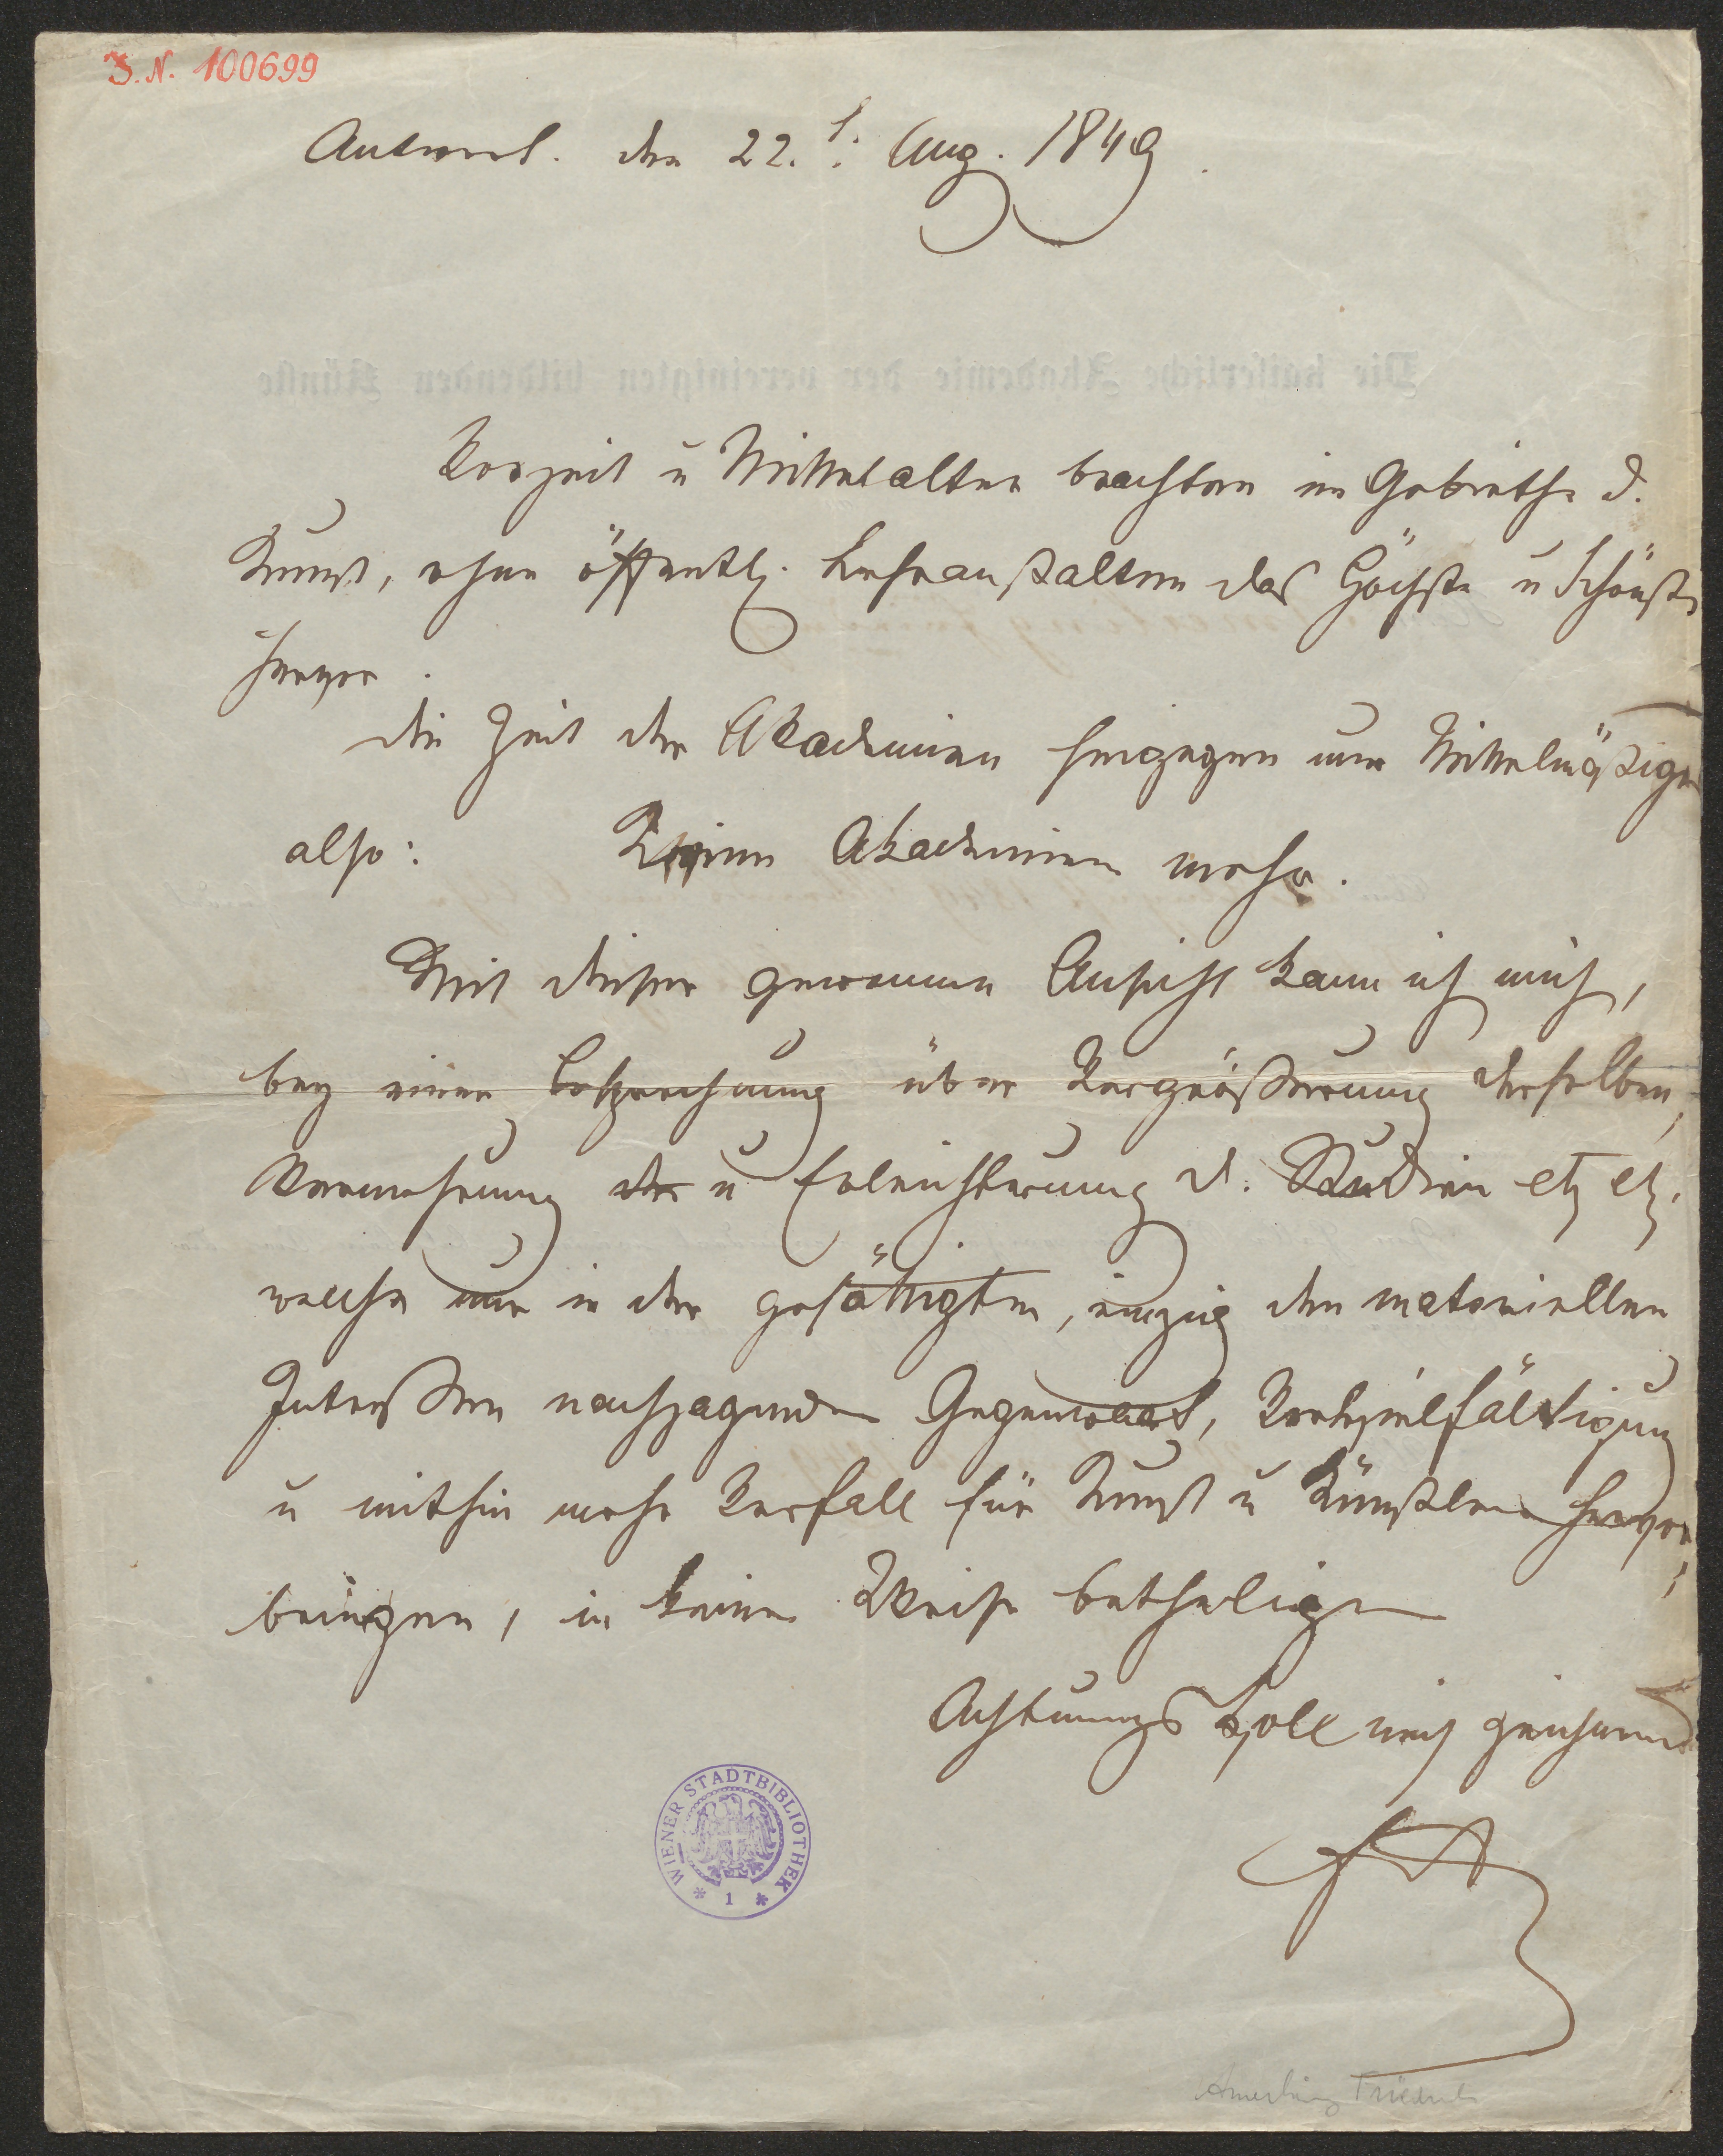 I.N. 100699
Antwort. den 22.t: Aug. 1849.
Vorzeit u Mittelalter brachten im Gebiethe d.
Kunst, ohne öffentl. Lehranstalten das Höchste u Schönste
hervor.
die Zeit der Akademien hingegen nur Mittelmäßiges
also: Keine Akademien mehr.
Mit dieser gewonnen Ansicht kann ich mich,
bey einer Besprechung über Vergrößerung derselben,
Vermehrung der u Erleichterung d. Studien etz etz.
welche nur in der gesättigten, einzig den materiellen
Interessen nachjagenden Gegenwart, Vervielfältigung
u mithin mehr Verfall für Kunst u Künstler hervor
bringen, in keiner Weise betheiligen
Achtungsvoll mich zeichnend
FA
WIENER STADTBIBLIOTHEK
* 1 *
Amerling Friedrich
Die kaiserliche Akademie der vereinigten bildenden Künste